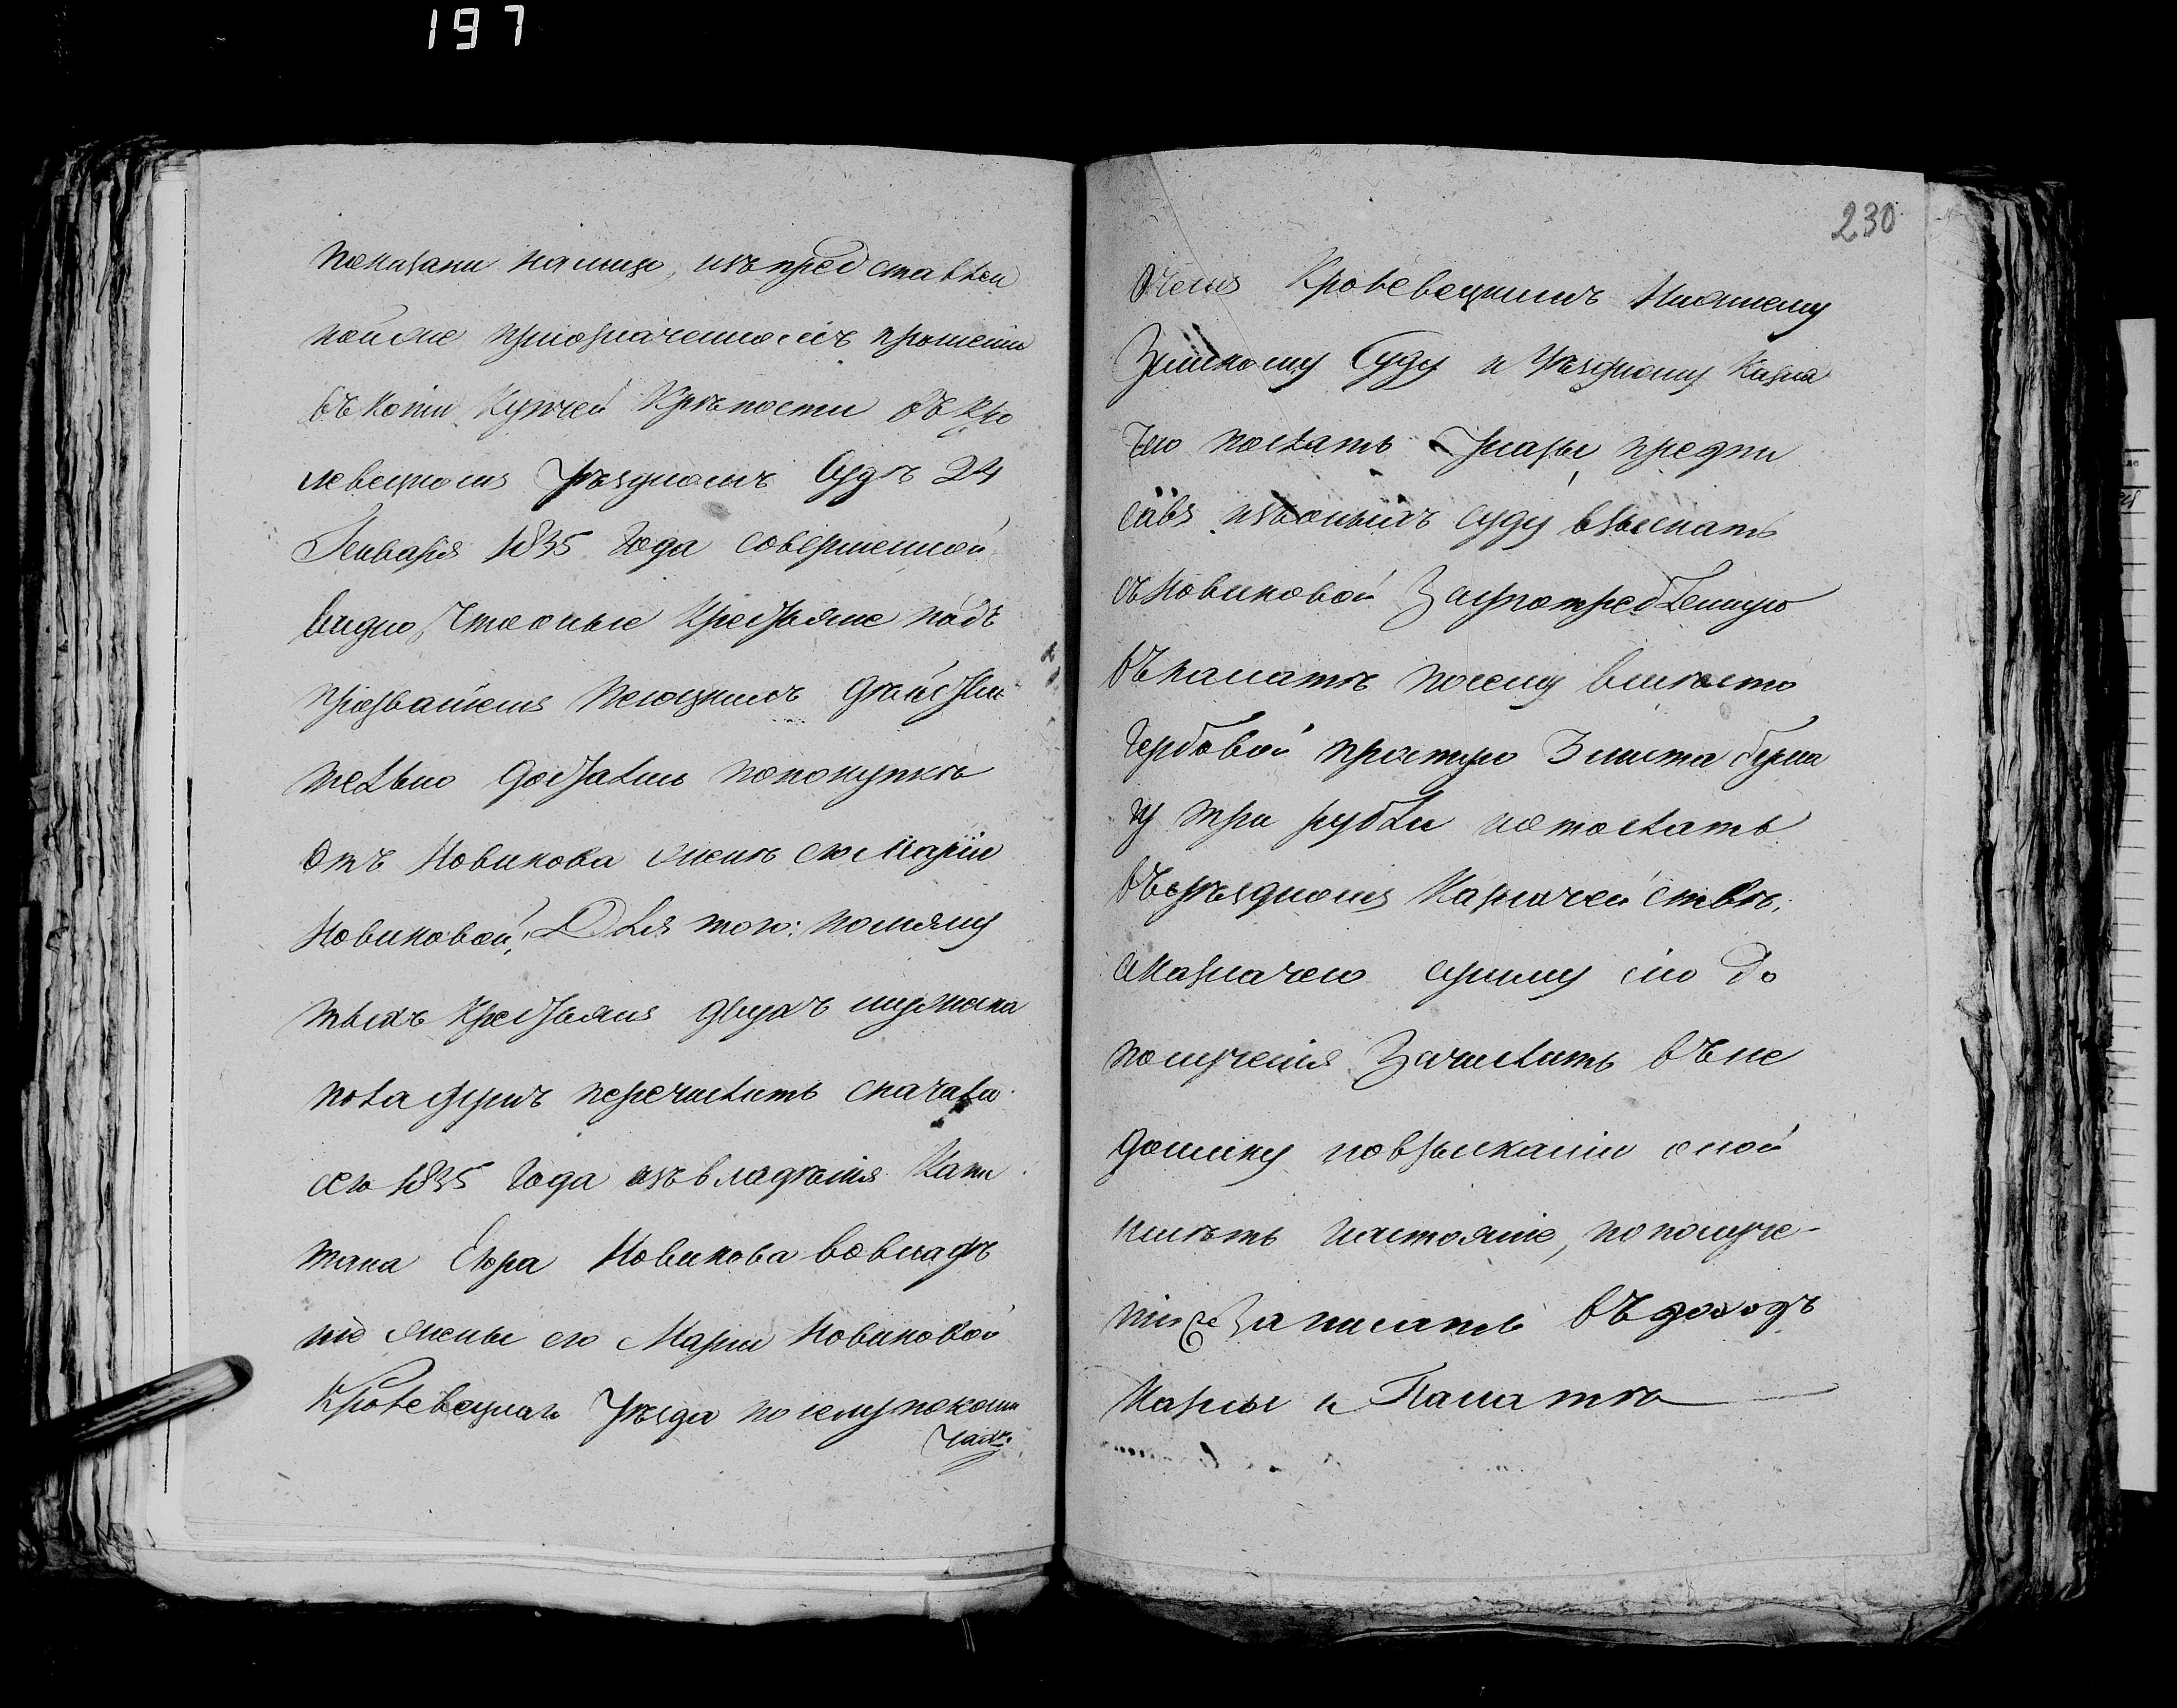 197
показани налицо, изъ представлен
ной же приозначенномъ прошеніи
въ копіи Купчей Крѣпости въ Кро
левецкомъ Уѣздномъ Судѣ 24
Генваря 1835 года совершенной
видно, что оные Крестьяне подъ
прозваніемъ дѣйстви
тельно достались попокупкѣ
отъ Новикова женѣ его Маріи
Новиковой; Для того: помяну
тыхъ Крестьянъ двухъ мужеска
пола душъ перечислить сначала
сего 1835 года изъ владѣнія Капи
тана Егора Новикова вовладѣ
ніе жены его Маріи Новиковой
Кролевецкаго Уѣзда по селу
230
о чемъ Кролевецкимъ Нижнему
Земскому Суду и Уѣздному Казна
чею послать Указы предпи
савъ изъ оныхъ суду взыскать
съ Новиковой Заупотребленную
въ палатѣ посему вмѣсто
гербовой простую 3 листа бума
гу три рубли и отослать
въ уѣздномъ Казначействѣ,
а Казначею сумму сію до
полученія Зачислить въ не
доимку повзысканіи оной
имѣть настояніе, пополуче-
ніи Записать въ доходъ
Казны и Палатѣ